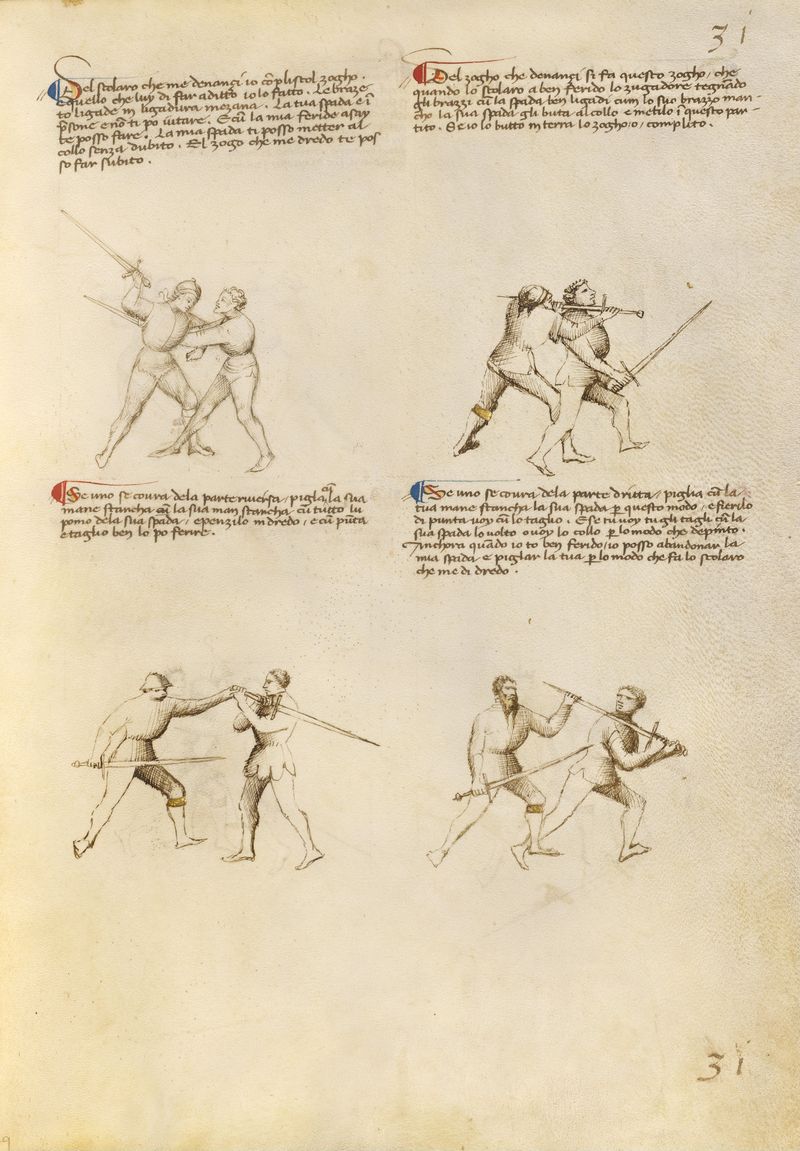 31
Del scolaro che me denançi io complisco'l zogho.
E quello che luy di far à ditto io lo fatto. Le braze
to ligade in ligadura mezana. La tua spada e in
p̃sone e nõ ti pò aitare. E cũ la mia feride asay
te posso fare. La mia spada ti posso metter al
collo senza dubito. El zogo che me dredo te pos
so far subito.
Del zogho che denançi si fa questo zogho, che
quando lo scolaro a ben ferido lo zugadore tegnãdo
gli brazzi cũ la spada ben ligadi cum lo suo brazzo man-
cho la sua spada gli buta al collo e metilo ĩ questo par-
tito. Se io lo butto in terra lo zogho, o, complito.
Se uno se covra dela parte riversa, pigla cũ la tua
mane stancha la sua man stancha cũ tutto lu
pomo dela sua spada, e penzilo indredo, e cũ pũta
e taglio ben lo po ferire.
Se uno se covra dela parte dritta, piglia cũ la
tua mane stancha la sua spada p̱ questo modo, e fierilo
di punta voy cũ lo taglio. E se tu voy tu gli tagli cũ la
sua spada lo volto o voy lo collo p̱ lo modo che depinto.
Anchora quãdo io to ben ferido, io posso abandonar la
mia spada e piglar la tua p̱ lo modo che fa lo scolaro
che me di dredo.
31